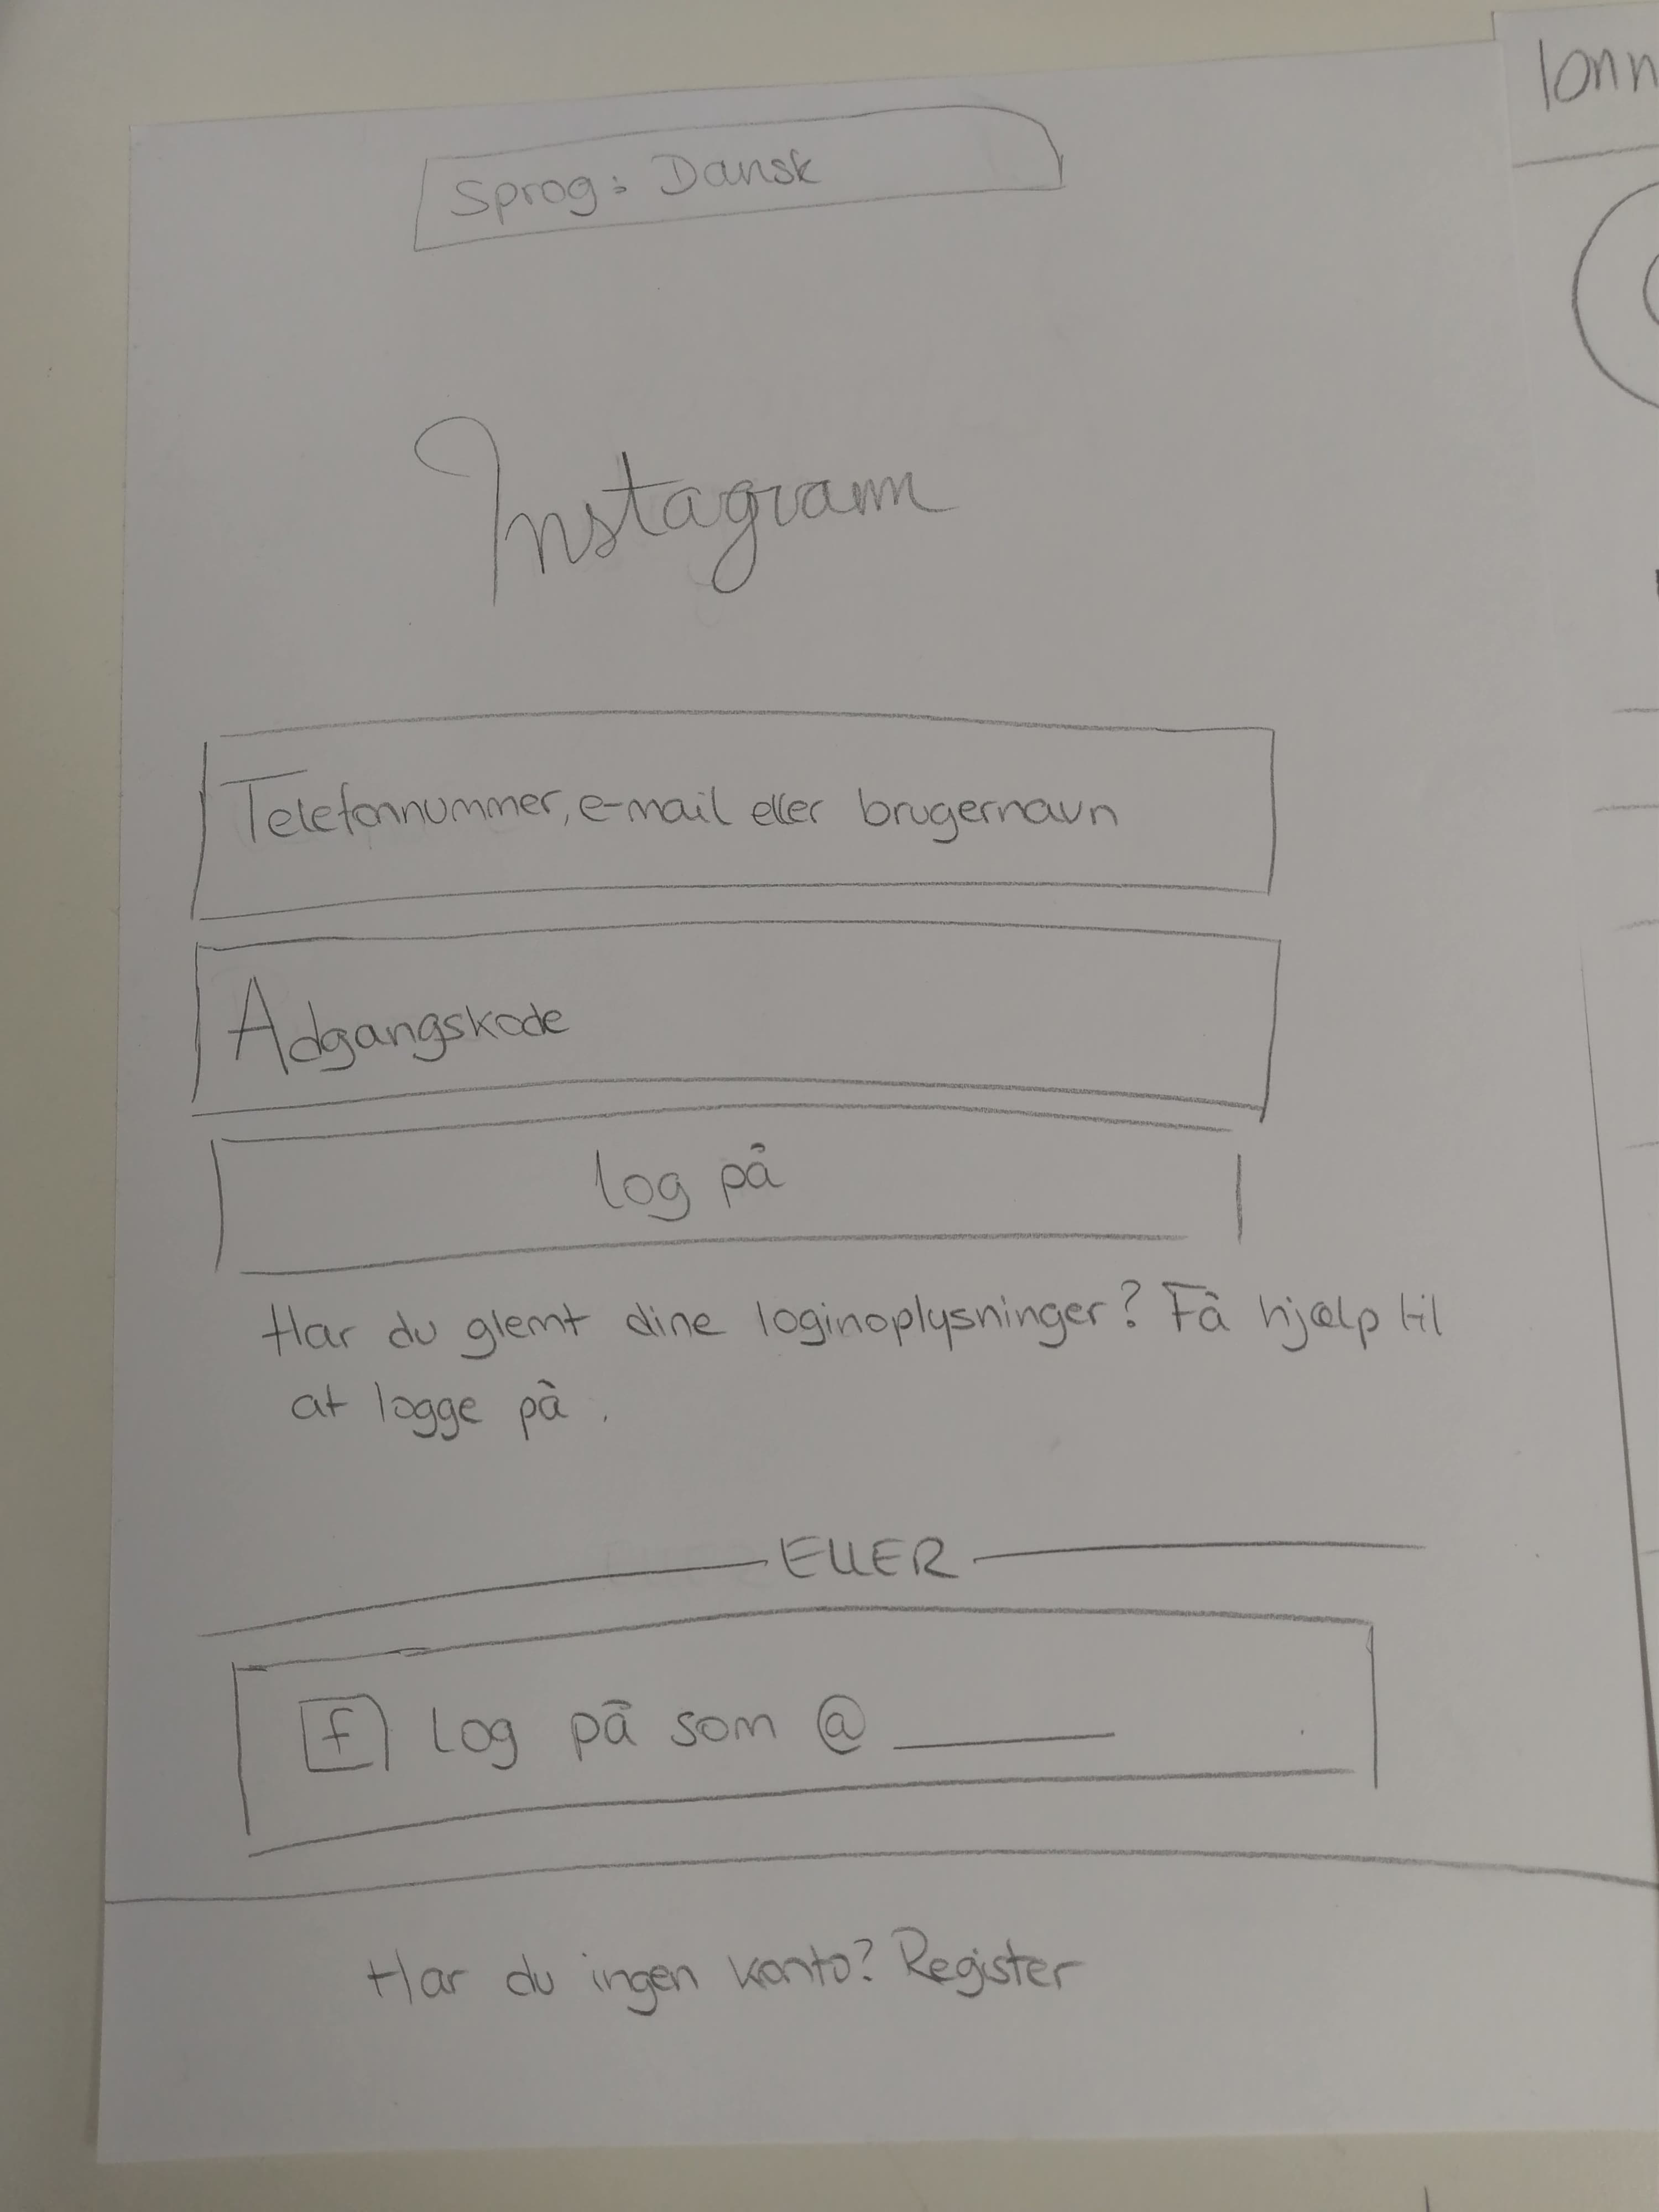 Sprog: Dansk
lonn
Instagram
Telefonnummer, e-mail eller brugernavn
Adgangskode
log på
Har du glemt dine loginoplysninger? Få hjælp til
at logge på.
ELLER
f log på som @
Har du ingen konto? Register